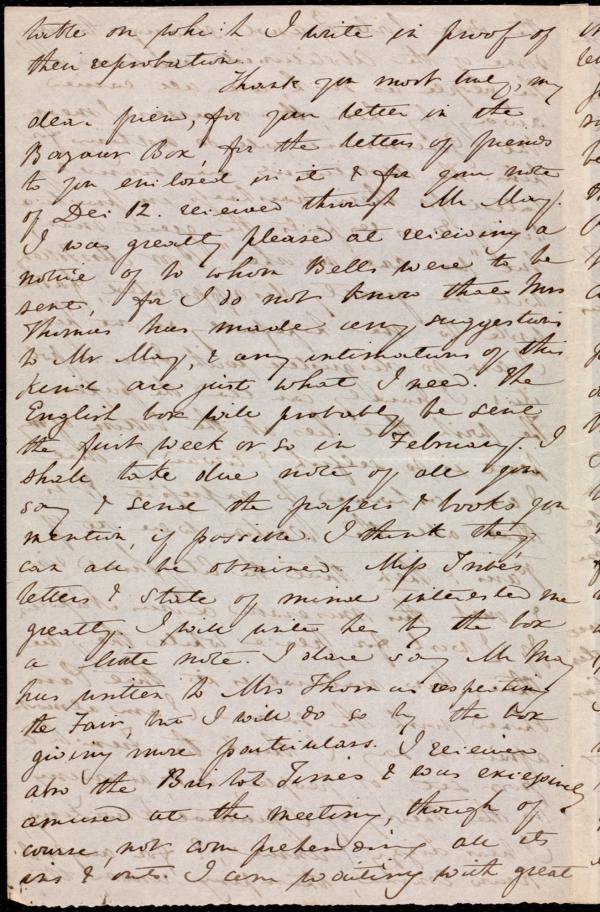 table on which I write in proof of
their reprobation.
Thank you most truly, my
dear friend, for your letter in the
Bazaar Box, for the letters of friends
to you enclosed in it & for your note
of Dec. 12. received through Mr May.
I was greatly pleased at receiving a
notice of to whom Bells were to be
sent, for I do not know that Mrs
Thomas has made any suggestions
to Mr May, & any intimations of this
kind are just what I need. The
English box will probably be sent
the first week or so in February. I
shall take due note of all you
say & send the papers & books you
mention, if possible. I think they
can all be obtained. Miss Tribe's
letters & state of mind interested me
greatly. I will write her by the box
a little note. I dare say Mr May
has written to Mrs Thomas respecting
the Fair, but I will do so by the box
giving more particulars. I received
also the Bristol Times & was exceedingly
amused at the meeting, though of
course, not comprehending all its
ins & outs. I am waiting with great